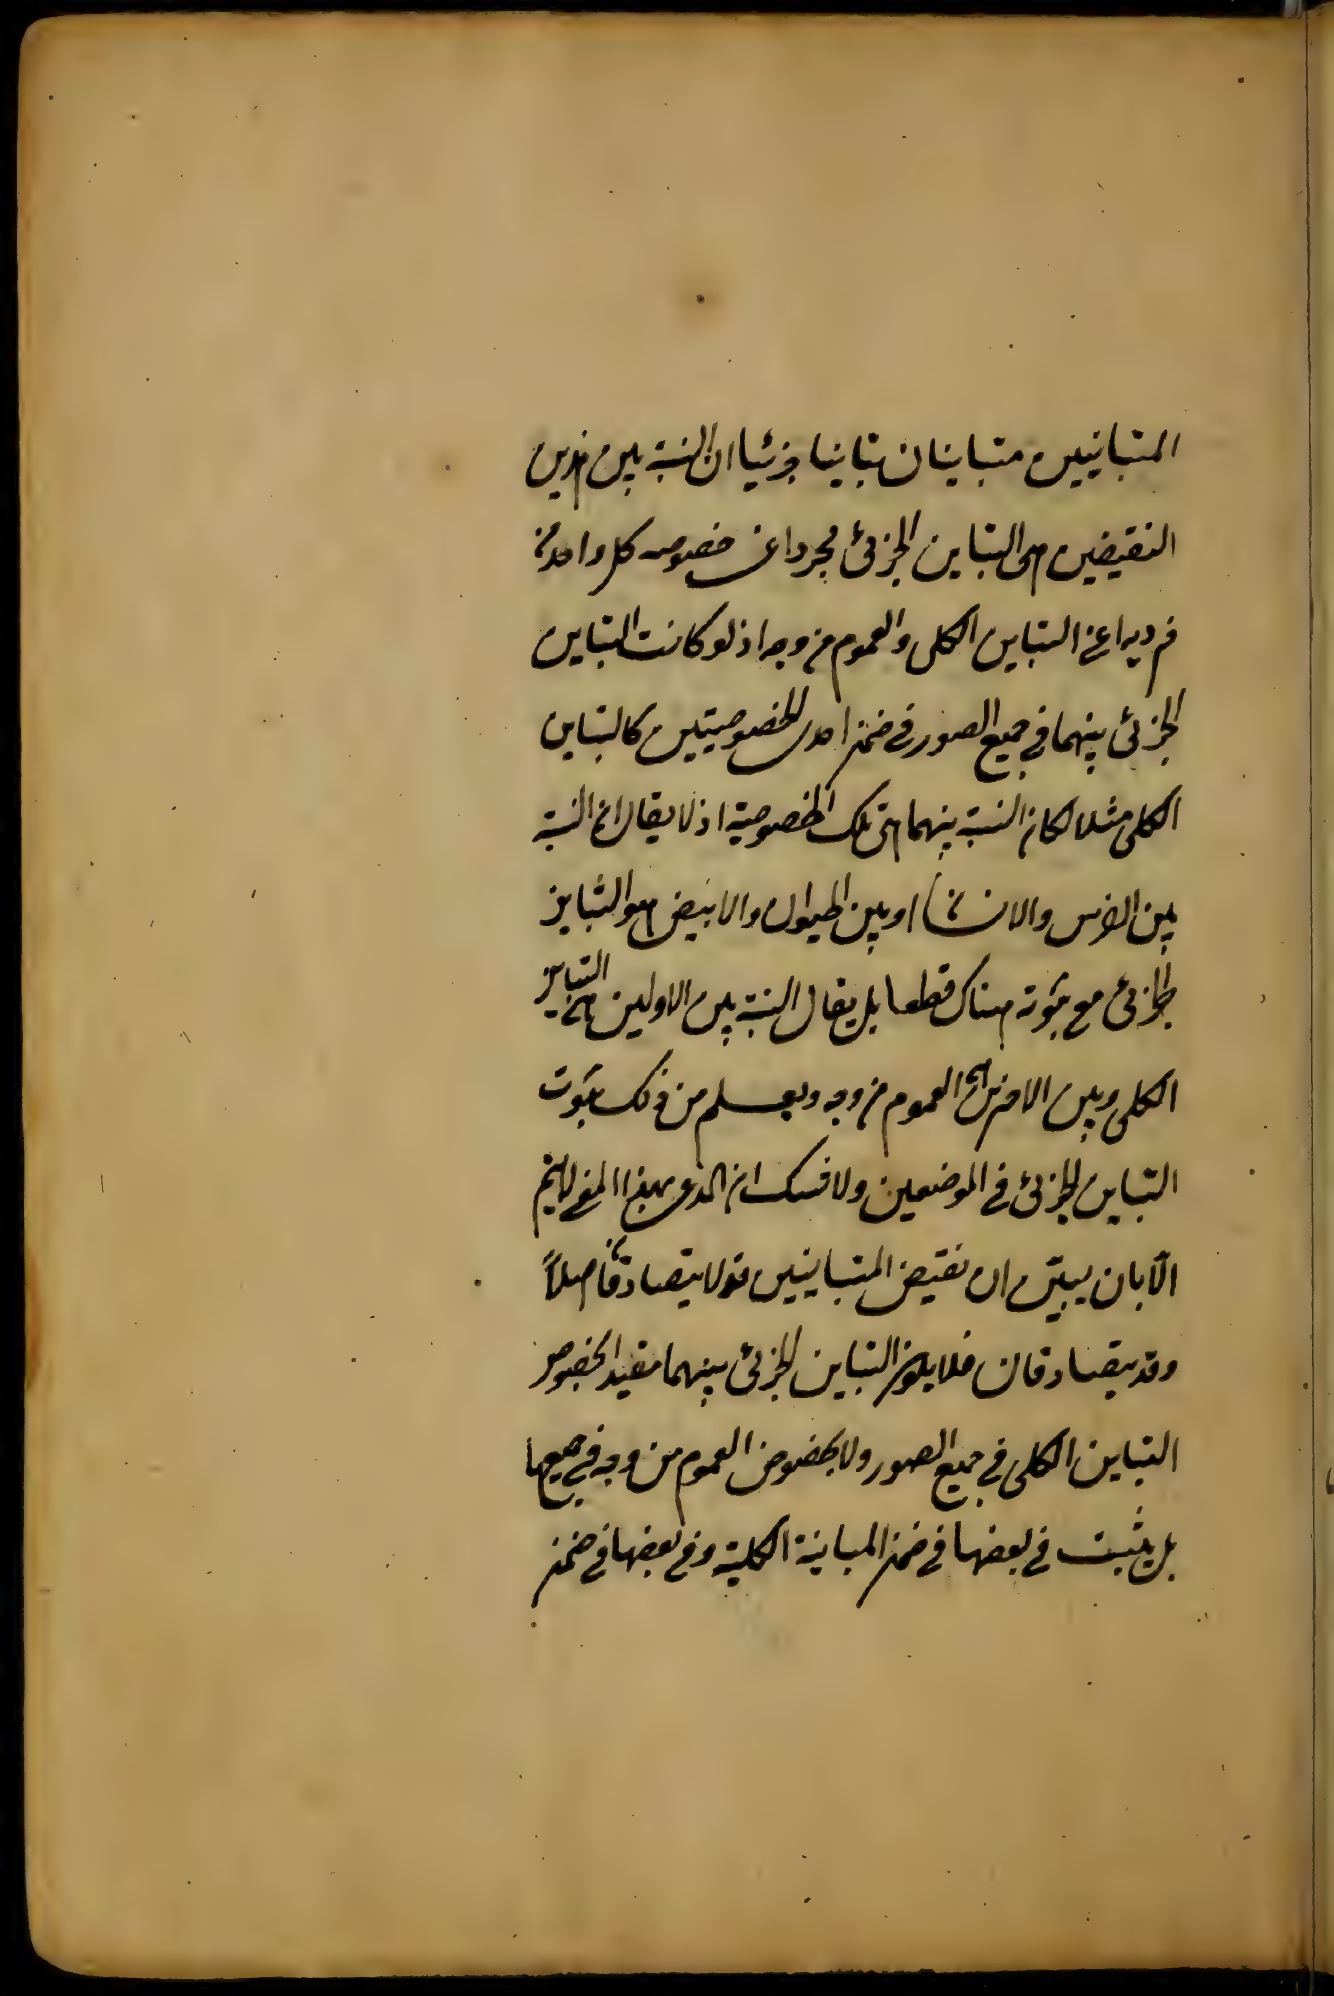 المتباينين متباينان تباينا جزئيا ان النسبة بين هذين
النقيضين هى التباين الجزئى مجردا عن خصوصه كل واحد من
فرديه اعنى التباين الكلى والعموم من وجه اذ لو كانت التباين
الجزئى بينهما فى جميع الصور فى ضمن احدى الخصوصيتين كالتباين
الكلى مثلا لكان النسبة بينهما هى تلك الخصوصية اذ لا يقال ان النسبة
بين الفرس والانسان او بين الحيوان والابيض هو التباين
الجزئى مع ثبوته هناك قطعا بل يقال النسبة بين الاولين هى التباين
الكلى وبين الاخرين هى العموم من وجه ويعلم من ذلك ثبوت
التباين الجزئى فى الموضعين ولا شك ان المدعى بهذا المعنى لا يتم
الّا بان يبيّن ان نقيضى المتباينين قد لا يتصادقان اصلاً
وقد يتصادقان فلا يكون التباين الجزئى بينهما مقيدا بخصوص
التباين الكلى فى جميع الصور ولا بخصوص العموم من وجه فى جميعها
بل يثبت فى بعضها فى ضمن المباينة الكلية وفى بعضها فى ضمن